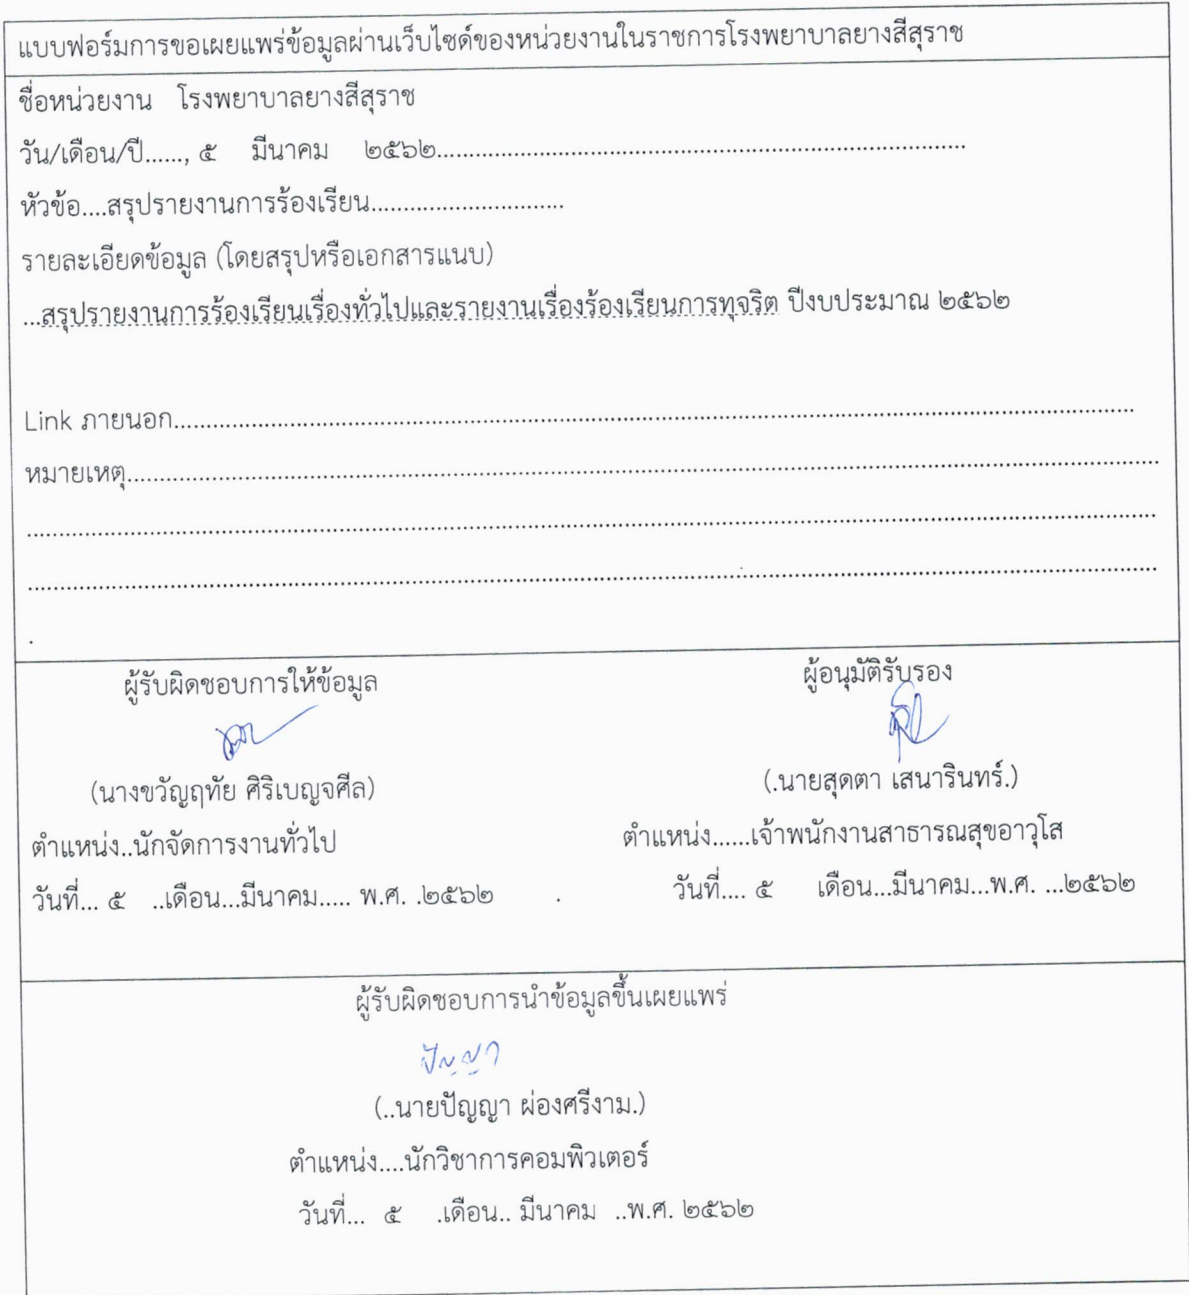 แบบฟอร์มการขอเผยแพร่ข้อมูลผ่านเว็บไซต์ของหน่วยงานในราชการโรงพยาบาลยางสีสุราช
ชื่อหน่วยงาน โรงพยาบาลยางสีสุราช
วัน/เดือน/ปี......, ๕ มีนาคม ๒๕๖๒................................................................................
หัวข้อ....สรุปรายงานการร้องเรียน.............................
รายละเอียดข้อมูล (โดยสรุปหรือเอกสารแนบ)
...สรุปรายงานการร้องเรียนเรื่องทั่วไปและรายงานเรื่องร้องเรียนการทุจริต ปีงบประมาณ ๒๕๖๒
Link ภายนอก................................................................................................................
หมายเหตุ................................................................................................................
................................................................................................................
................................................................................................................
.
ผู้รับผิดชอบการให้ข้อมูล
(นางขวัญฤทัย ศิริเบญจศีล)
ตำแหน่ง..นักจัดการงานทั่วไป
วันที่... ๕ ..เดือน...มีนาคม..... พ.ศ. .๒๕๖๒ .
ผู้อนุมัติรับรอง
(.นายสุดตา เสนารินทร์.)
ตำแหน่ง......เจ้าพนักงานสาธารณสุขอาวุโส
วันที่.... ๕ เดือน...มีนาคม...พ.ศ. ...๒๕๖๒
ผู้รับผิดชอบการนำข้อมูลขึ้นเผยแพร่
ปัญญา
(..นายปัญญา ผ่องศรีงาม.)
ตำแหน่ง....นักวิชาการคอมพิวเตอร์
วันที่... ๕ .เดือน.. มีนาคม ..พ.ศ. ๒๕๖๒